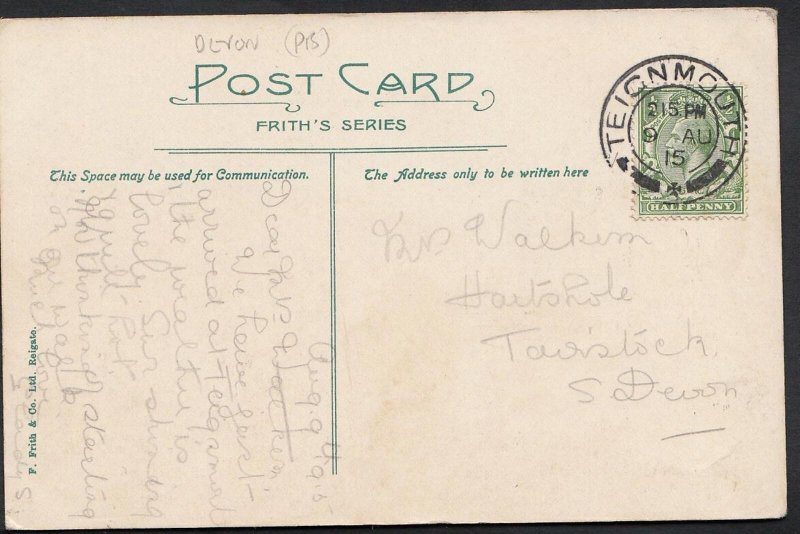 DEVON (P15)
POST CARD
FRITH'S SERIES
This Space may be used for Communication.
The Address only to be written here
TEIGNMOUTH
215 PM
9 AU
15
HALFPENNY
Aug 9th 15
Dear Mrs Walkem
We have just
arrived at Teignmouth
the weather is
lovely Sun shining
hot
starting
on our way
love
Mrs Walkem
Tavistock
S Devon
F. Frith & Co. Ltd. Reigate.